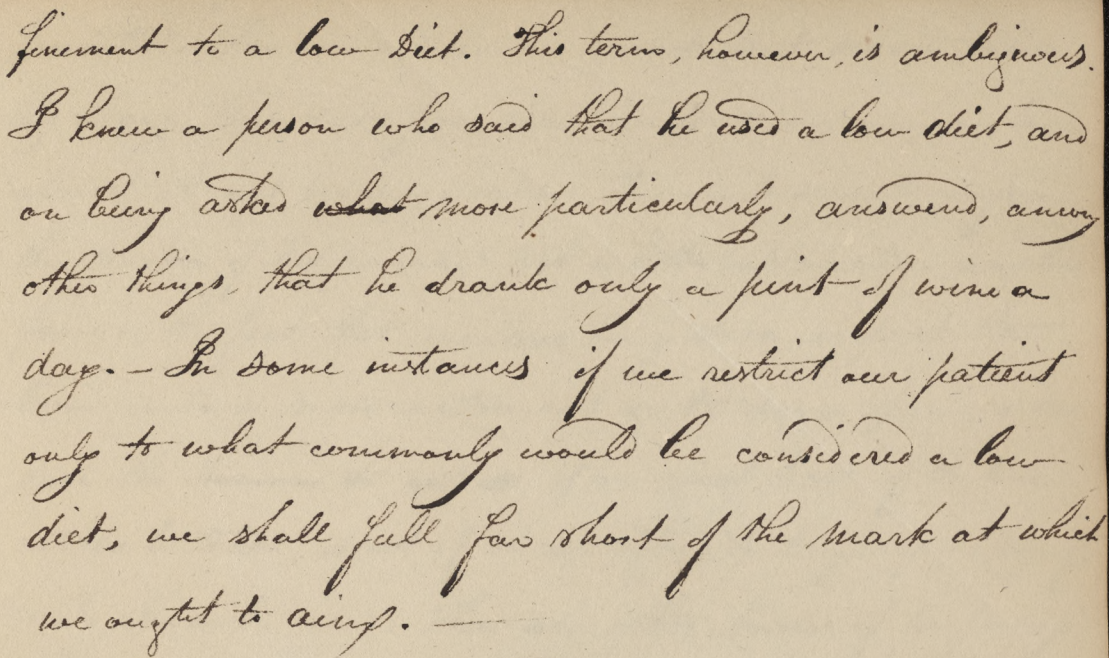 finement to a low Diet. This term, however, is ambiguous.
I knew a person who said that he used a low diet, and
on being asked what more particularly, answered, among
other things, that he drank only a pint of wine a
day. – In some instances if we restrict our patient
only to what commonly would be considered a low
diet, we shall fall far short of the mark at which
we ought to aim. —